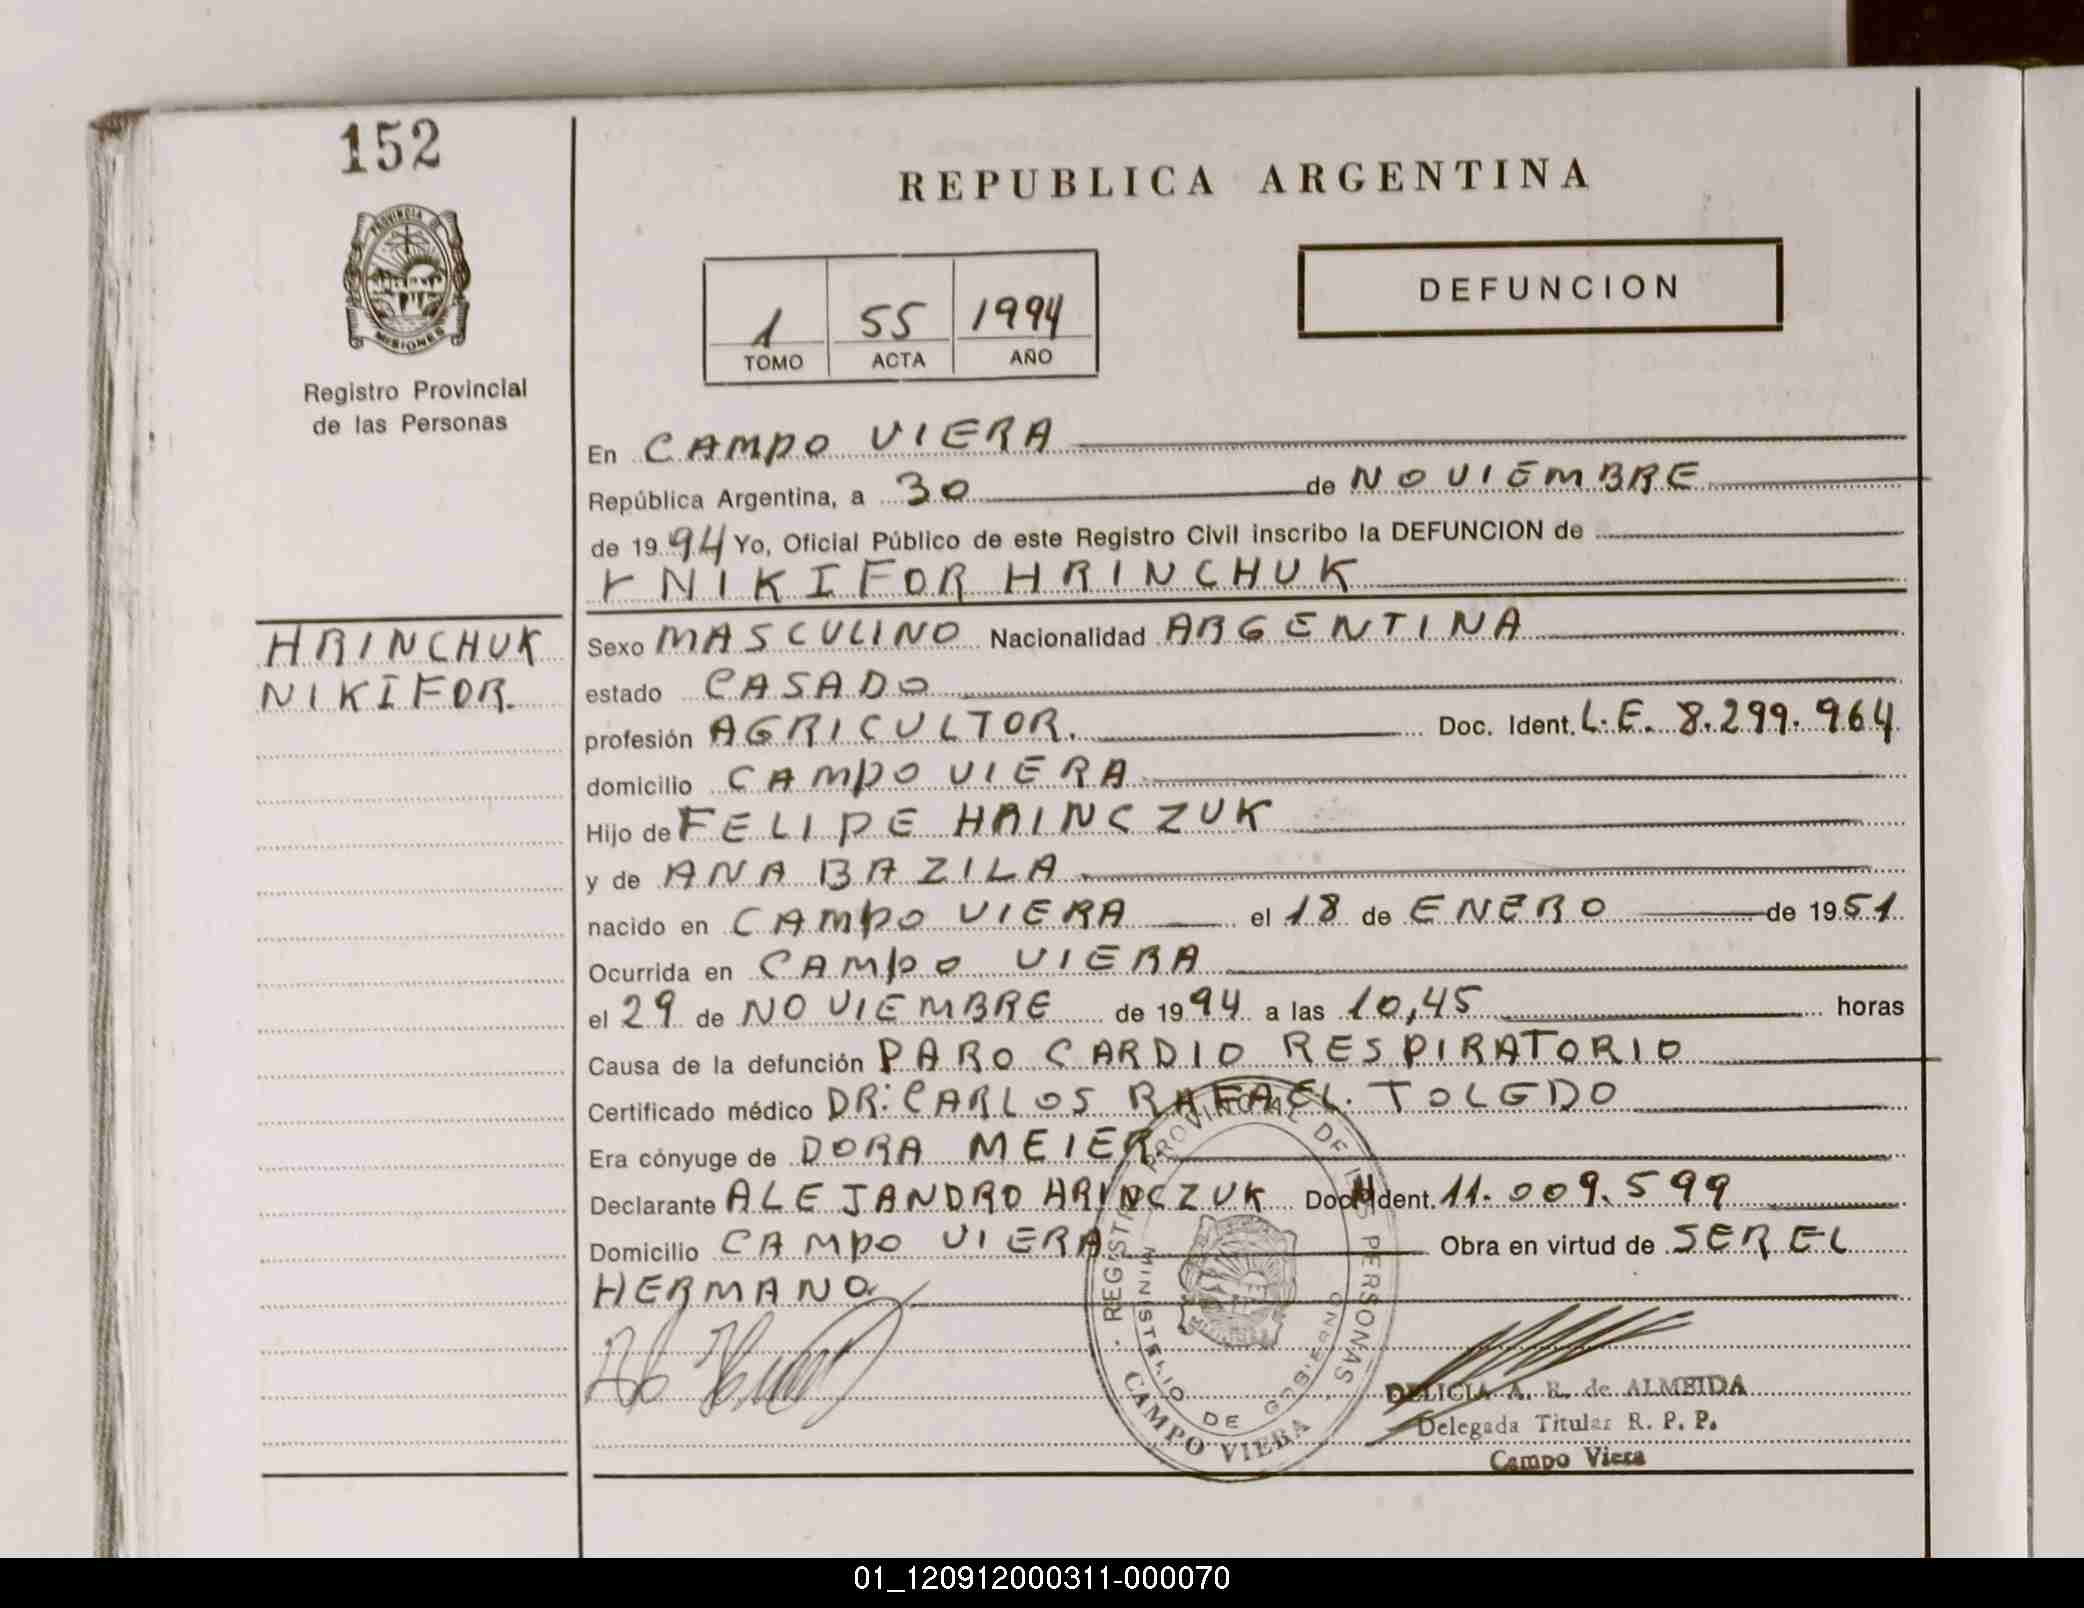 152
PROVINCIA DE
MISIONES
Registro Provincial
de las Personas
HRINCHUK
NIKIFOR.
REPUBLICA ARGENTINA
1 55 1994
TOMO ACTA AÑO
DEFUNCION
En CAMPO VIERA
República Argentina, a 30 de NOVIEMBRE
de 1994 Yo, Oficial Público de este Registro Civil inscribo la DEFUNCION de
NIKIFOR HRINCHUK
Sexo MASCULINO Nacionalidad ARGENTINA
estado CASADO
profesión AGRICULTOR. Doc. Ident. L.E. 8.299.964
domicilio CAMPO VIERA
Hijo de FELIPE HRINCZUK
y de ANA BAZILA
nacido en CAMPO VIERA el 18 de ENERO de 1951
Ocurrida en CAMPO VIERA
el 29 de NOVIEMBRE de 1994 a las 10,45 horas
Causa de la defunción PARO CARDIO RESPIRATORIO
Certificado médico DR: CARLOS RAFAEL. TOLEDO
Era cónyuge de DORA MEIER
Declarante ALEJANDRO HRINCZUK Doc. Ident. 11.009.599
Domicilio CAMPO VIERA Obra en virtud de SER EL
HERMANO
REGISTRO PROVINCIAL DE LAS PERSONAS
MINISTERIO DE GOBIERNO
CAMPO VIERA
DELICIA A. R. de ALMEIDA
Delegada Titular R. P. P.
Campo Viera
01_120912000311-000070